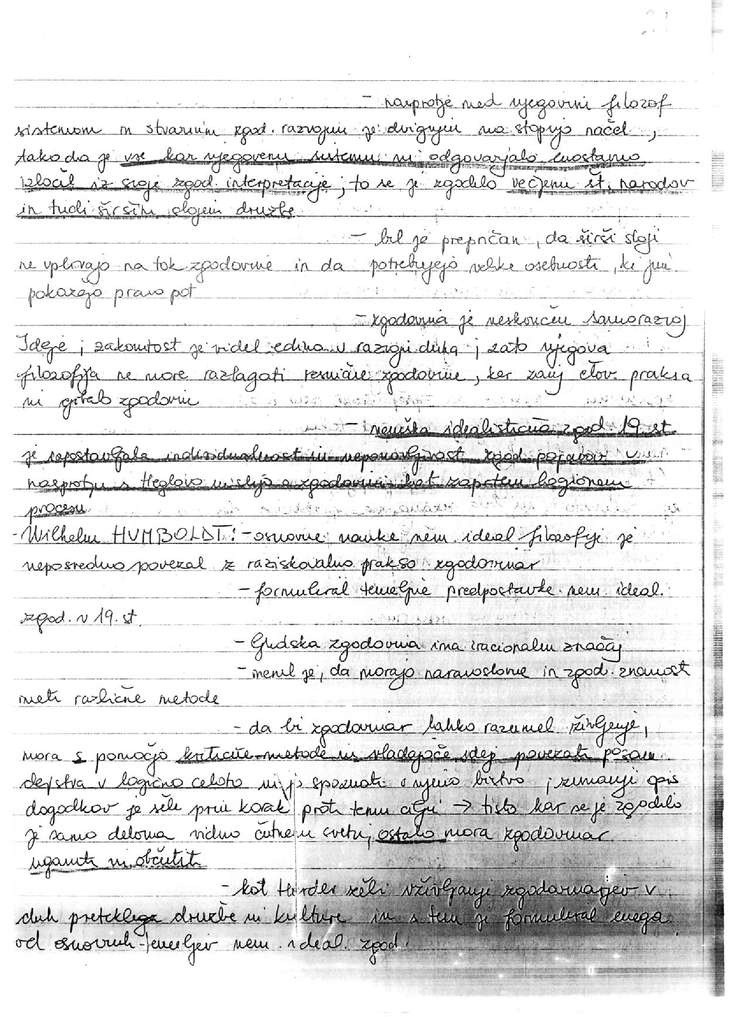 - nasprotje med njegovim filozof
sistemom in stvarnim zgod. razvojem je dvignjen na stopnjo načel,
tako da je vse kar njegovemu sistemu ni odgovarjalo enostavno
izločil iz svoje zgod. interpretacije; to se je zgodilo večjemu št. narodov
in tudi širšim slojem družbe
- bil je prepričan, da širši sloji
ne vplivajo na tok zgodovine in da potrebujejo velike osebnosti, ki jim
pokažejo pravo pot
- zgodovina je neskončen samorazvoj
Ideje; zakonitost je videl edino v razvoju duha; zato njegova
filozofija ne more razlagati resnične zgodovine, ker zanj člov. praksa
ni gibalo zgodovine
- nemška idealistična zgod. 19. st
je izpostavljala individualnost in neponovljivost zgod. pojavov v
nasprotju s Heglovo mislijo o zgodovini kot zaprtem logičnem
procesu
- Wilhelm HUMBOLDT: - osnovne nauke nem. ideal. filozofije je
neposredno povezal z raziskovalno prakso zgodovinar
- formuliral temeljne predpostavke nem. ideal.
zgod. v 19. st.
- ljudska zgodovina ima iracionalen značaj
- menil je, da morajo naravoslovne in zgod. znanost
imeti različne metode
- da bi zgodovinar lahko razumel življenje,
mora s pomočjo kritične metode in vladajoče idej povezati posam
dejstva v logično celoto in jo spoznati v njeno bistvo; zunanji opis
dogodkov je šele prvi korak proti temu cilju → tisto kar se je zgodilo
je samo deloma vidno čutnemu svetu, ostalo mora zgodovinar
uganiti in občutiti
- kot Herder želi vživljanje zgodovinarjev v
duh pretekle družbe in kulture in s tem je formuliral enega
od osnovnih temeljev nem. ideal. zgod.